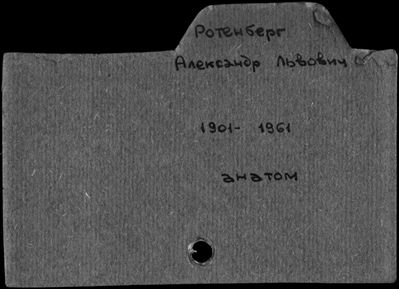 Ротенберг
Александр Львович
1901- 1961
анатом